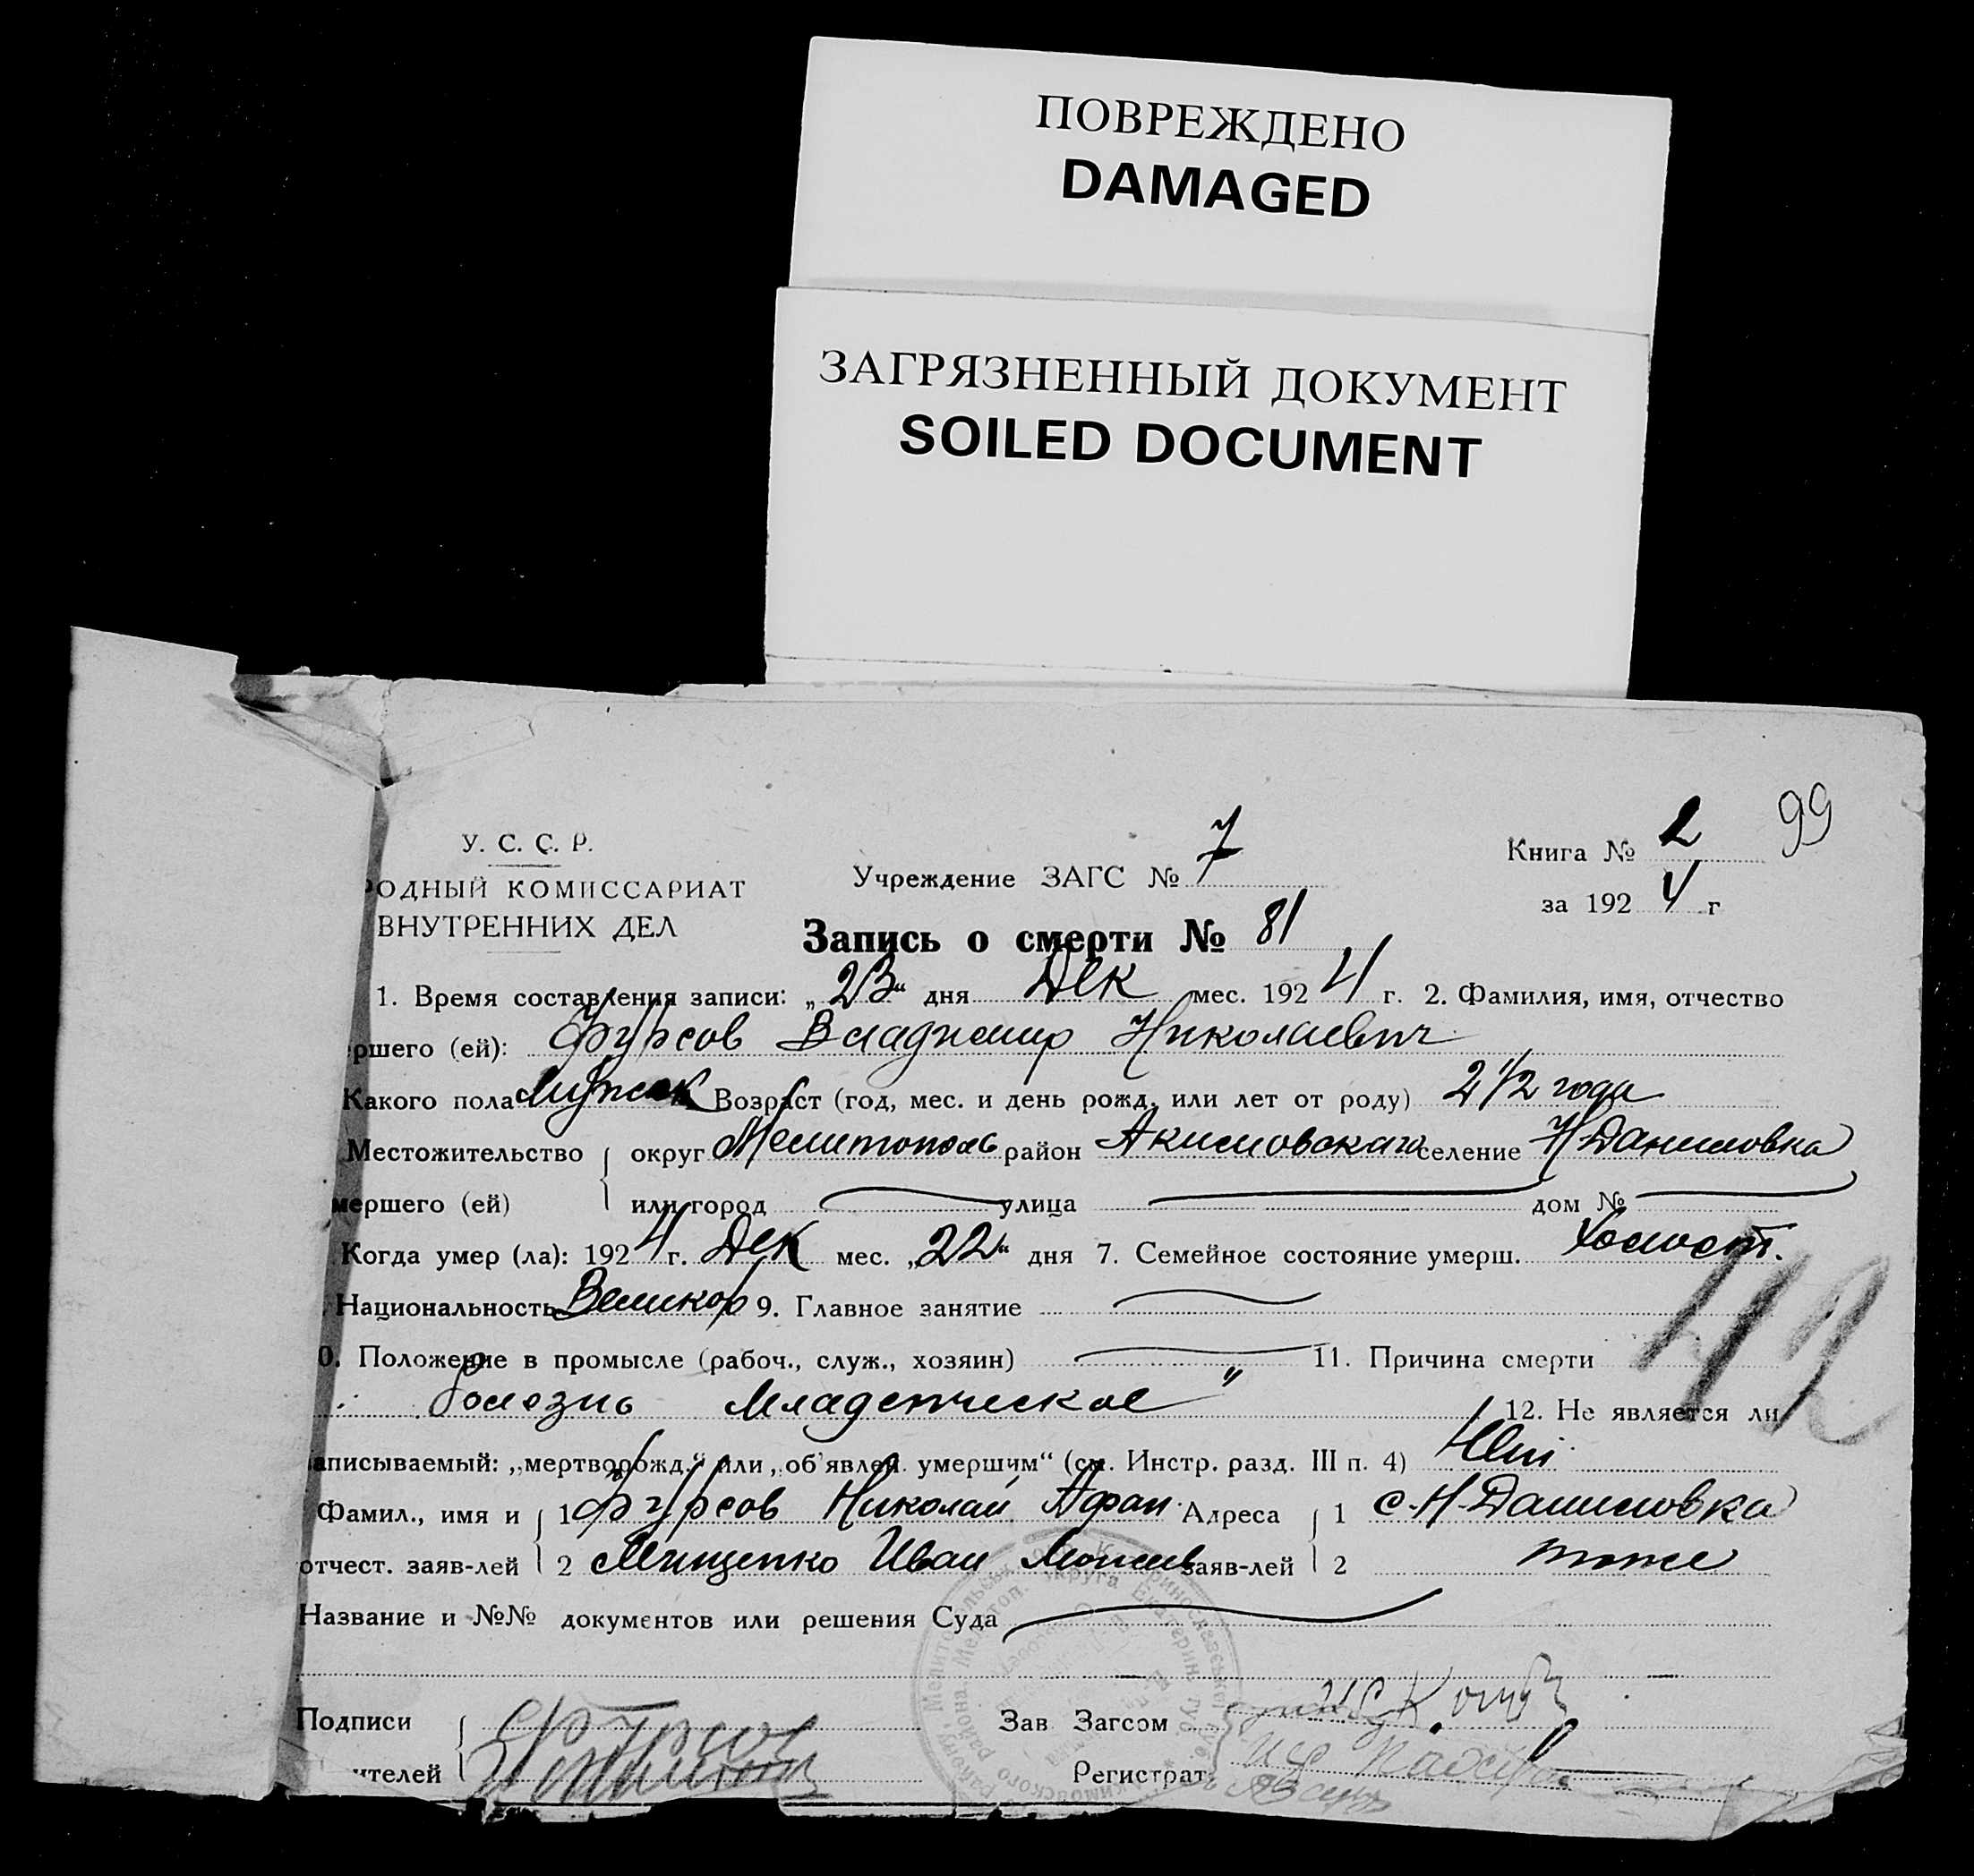 ПОВРЕЖДЕНО
DAMAGED
ЗАГРЯЗНЕННЫЙ ДОКУМЕНТ
SOILED DOCUMENT
99
У. С. С. Р.
Учреждение ЗАГС № 7
Книга № 2
РОДНЫЙ КОМИССАРИАТ
за 1924 г
ВНУТРЕННИХ ДЕЛ
Запись о смерти № 81
1. Время составления записи: „23“ дня Дек мес. 1924 г. 2. Фамилия, имя, отчество
ршего (ей): Фурсов Владимир Николаевич
Какого пола Мужск Возраст (год, мес. и день рожд. или лет от роду) 2 1/2 года
Местожительство округ Мелитополь район Акимовского селение Н Даниловка
мершего (ей) или город улица дом №
Когда умер (ла): 1924 г. Дек мес. „22“ дня 7. Семейное состояние умерш. Холост.
Национальность Великор 9. Главное занятие
0. Положение в промысле (рабоч., служ., хозяин) 11. Причина смерти
болезнь Младенческое" 12. Не является ли
42
аписываемый: „мертворожд.“ или „об'явлен. умершим“ (см. Инстр. разд. III п. 4)
Фамил., имя и 1 Фурсов Николай Афан. Адреса 1 с. Н-Даниловка
отчест. заяв-лей 2 Мищенко Иван заяв-лей 2 тоже
Название и №№ документов или решения Суда
Подписи Зав Загсом
ителей Регистрат